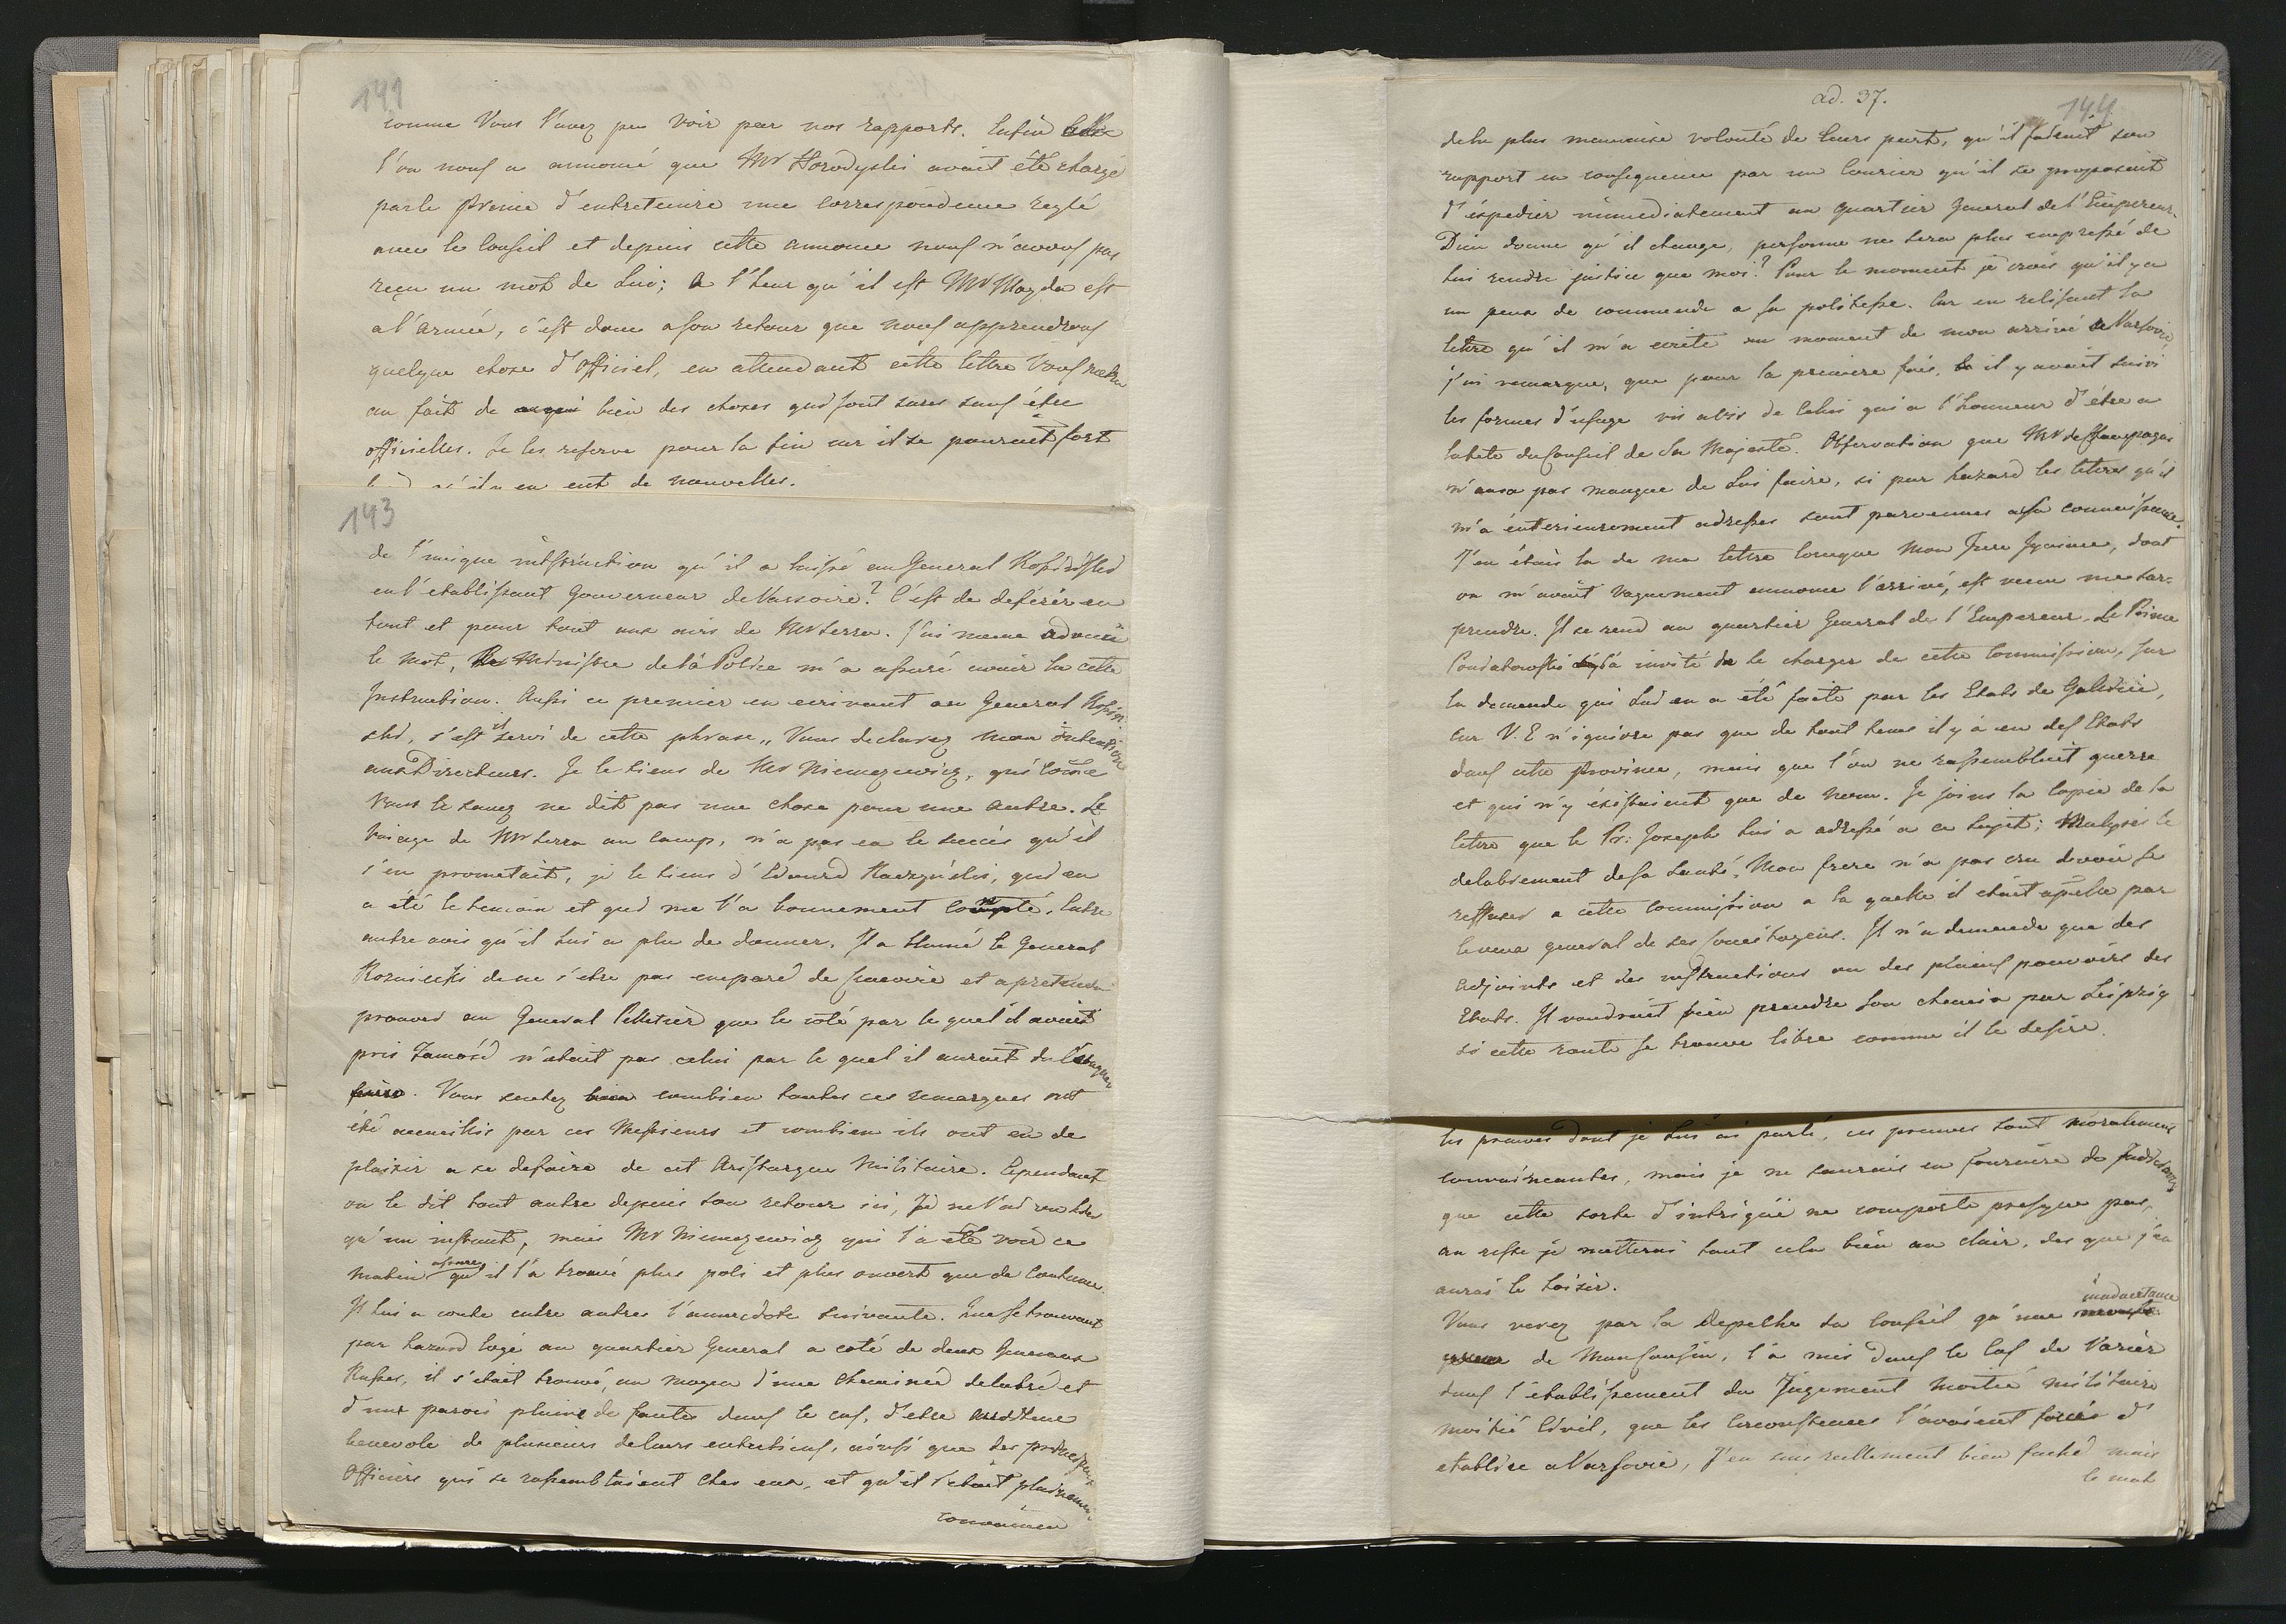 141
comme Vous l'avez pu voir par nos rapports. Enfin
l'on nous a annoncé que Mr Horodyski avait été chargé
par le Prince d'entretenire une correspondence reglé
avec le Conseil et depuis cette annonce nous n'avons pas
reçu un mot de Lui; a l'heur qu'il est Mr Mayda est
a l'armée, c'est donc a son retour que nous apprendrons
quelque chose d'officiel, en attendant cette lettre Vous
au fait de bien des choses qui sont sures sans être
officielles. Je les reserve pour la fin car il se pourait fort
qu'il y en eut de nouvelles.
143
de l'unique instruction qu'il a laissé au General
en l'etablissant Gouverneur de Varsovie? C'est de deferer en
tout et pour tout aux avis de Mr Serra. J'ai meme
le mot, Ministre de la Police m'a assuré avoir lu cette
Instruction. Aussi ce premier en ecrivant au General
s'est il servi de cette phrase „ Vous declarez mon intention
aux Directeurs. Je le tiens de Mr Niemczewicz, qui come
Vous le savez ne dit pas une chose pour une autre. Le
voiage de Mr Serra au camp, n'a pas eu le succès qu'il
s'en prometait, je le tiens d'Edouard Raczyński, qui en
a été le temoin et qui me l'a bonnement conté. Entre
autre avis qu'il lui a plu de donner. Il a blamé le General
Rozniecki de ne s'etre pas emparé de et a pretendu
prouver au General Pelletier que le coté par le quel il avait
pris Zamość n'etait pas celui par le quel il aurait du l'attaquer
Vous sentez combien toutes ces remarques ont
été accueillis par ces Messieurs et combien ils ont eu de
plaisir a se defaire de cet Aristarque Militaire. Cependant
on le dit tout autre depuis son retour ici, Je ne l'ai vu
qu'un instant, mais Mr Niemczewicz qui l'a été voir ce
matin assure qu'il l'a trouvé plus poli et plus ouvert que de coutume
Il lui a conté entre autres l'annecdote suivante. Que se trouvant
par hazard logé au quartier General a coté de deux Generaux
Russes, il s'etait trouvé, au moyen d'une cheminée delabré et
d'une parois pleine de fentes dans le cas, d'etre auditeur
benevole de plusieurs de leurs entretiens, ainsi que des principaux
Officiers qui se rassemblaient ches eux, et qu'il s'etait pleinement
convaincu
ad. 37.
144
de la plus mauvaise volonté de leurs part, qu'il faisait son
rapport en consequence par un Courier qu'il se proposait
d'éxpedier immediatement au quartier General de l'Empereur.
Dieu donne qu'il change, personne ne sera plus empressé de
lui rendre justice que moi? Pour le moment je crois qu'il y a
un peux de commende a sa politesse. Car en relisant la
lettre qu'il m'a ecrite au moment de mon arrivé a Varsovie
j'ai remarque, que pour la premiere fois, il y avait suivi
les formes d'usage vis a vis de celui qui a l'honneur d'étre a
la tete du Conseil de Sa Majesté. Observation que Mr de Champagni
n'aura pas manque de Lui faire, si par hazard les lettres qu'il
m'a énterieurement adresses sont parvenues a sa connaissance.
J'en étais la de ma lettre lorsque mon frere Ignace, dont
on m'avait vaguement annonce l'arrivé, est venu me sur-
prendre. Il se rend au quartier General de l'Empereur. Le Prince
Poniatowski l'a invité de se charger de cette Commission, sur
la demande qui Lui en a été faite par les Etats de Galicie,
Car V. E n'ignore pas que de tout tems il y a eu des Etats
dans cette Province, mais que l'on ne rassemblait guerre
et qui n'y éxistaient que de nom. Je joins la copie de la
lettre que le Pr: Joseph lui a adressé a ce sujet; Malgrés le
delabrement de sa santé, Mon frere n'a pas cru devoir se
reffuser a cette commission a la quelle il était apellé par
le voeux general de ses Concitoyens. Il n'a demandé que des
adjoints et des instructions ou des pleins pouvoirs des
Etats. Il voudrait bien prendre son chemin par Leipzig
si cette route se trouve libre comme il le desire.
les preuves dont je Lui ai parlé, ces preuves sont moralement
convaincantes, mais je ne saurais en fournire de
que cette sorte d'intrigue ne comporte presque pas,
au reste je metterai tout cela bien au clair, des que j'en
aurai le loisir.
Vous verez par la depeche du Conseil qu'une inadvertance
de Mr Sanguin, l'a mis dans le cas de varier
dans l'établissement du Jugement moitié militaire
moitié Civil, que les circonstances l'avaient forcés d'
etablire a Varsovie, J'en suis reellement bien faché mais
le mal